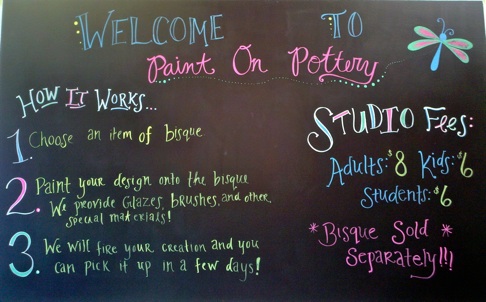 WELCOME TO
Paint On Pottery
How IT Works...
1. Choose an item of bisque
2. Paint your design onto the bisque
We provide Glazes, brushes, and other
special materials!
3. We will fire your creation and you
can pick it up in a few days!
STUDIO Fees:
Adults: $8 Kids: $6
Students: $6
*Bisque Sold *
Separately!!!